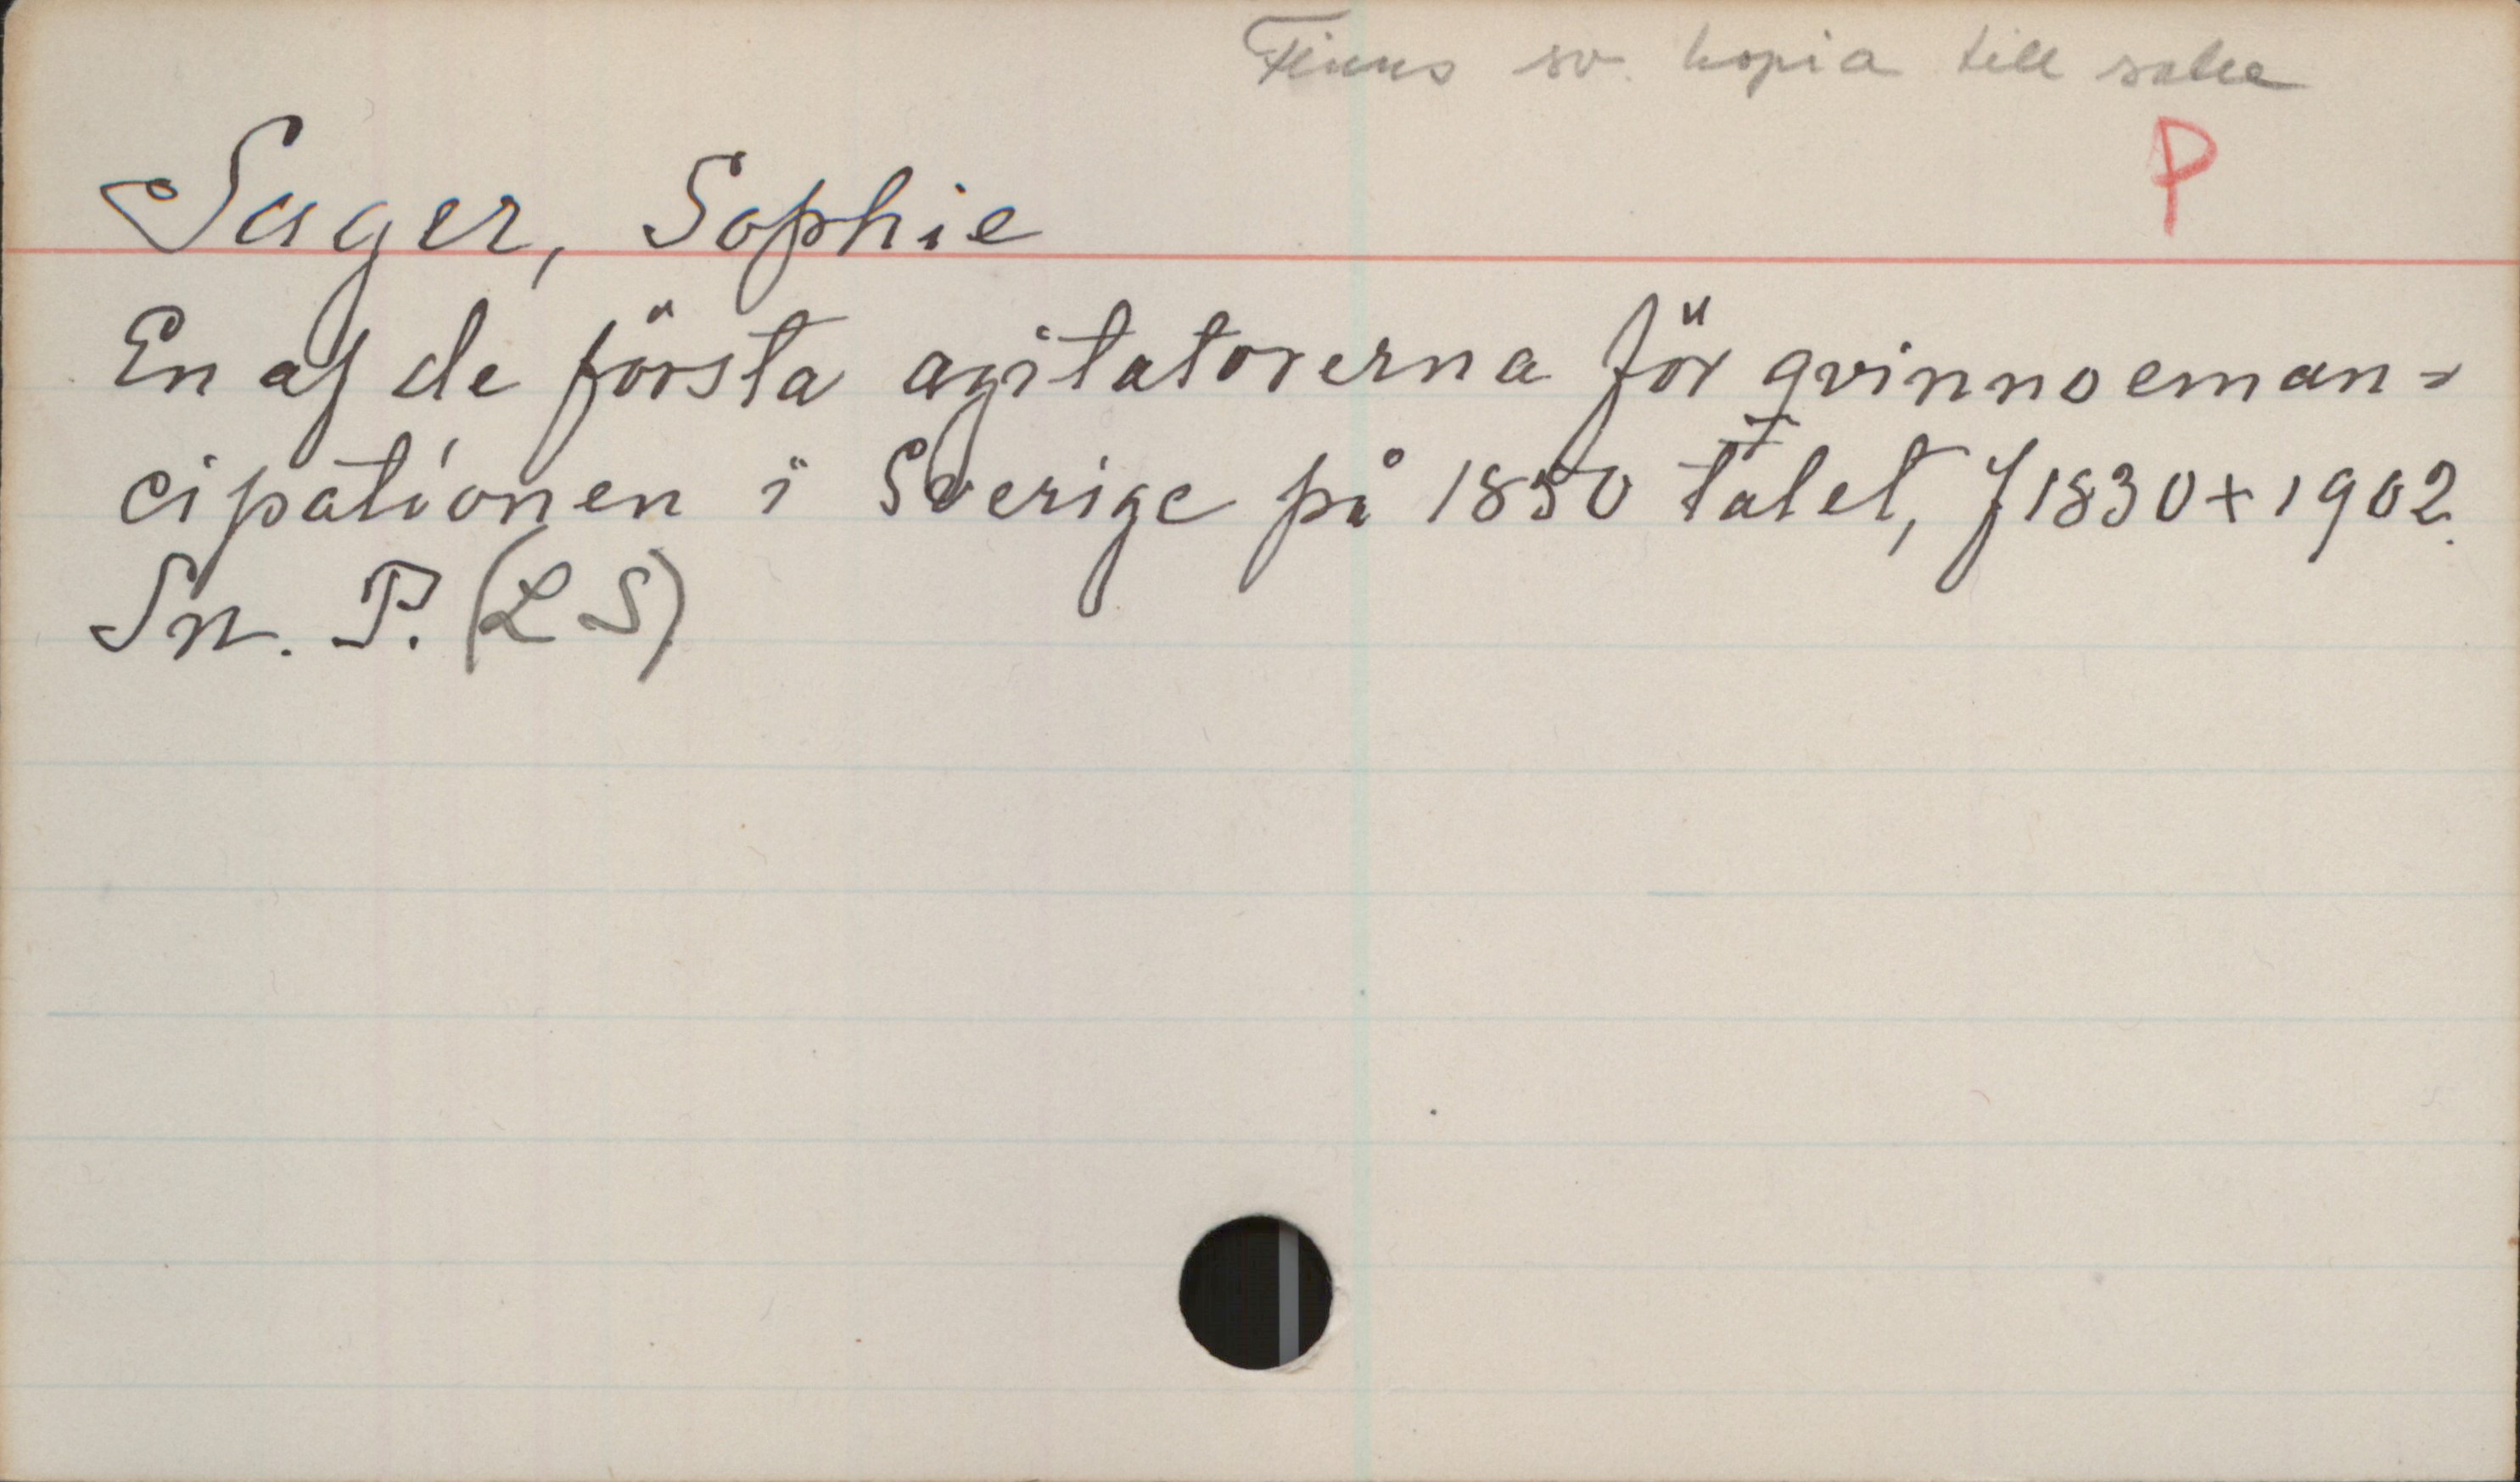 Finns sv. kopia till salu
P
Sager, Sophie
En af de första agitatorerna för qvinnoeman=
cipationen i Sverige på 1850 talet, f 1830 + 1902.
Sn. P. (LS)